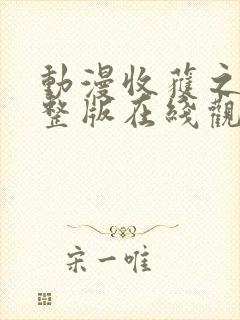 動漫收蓷之
整版在綫觀
宋一唯